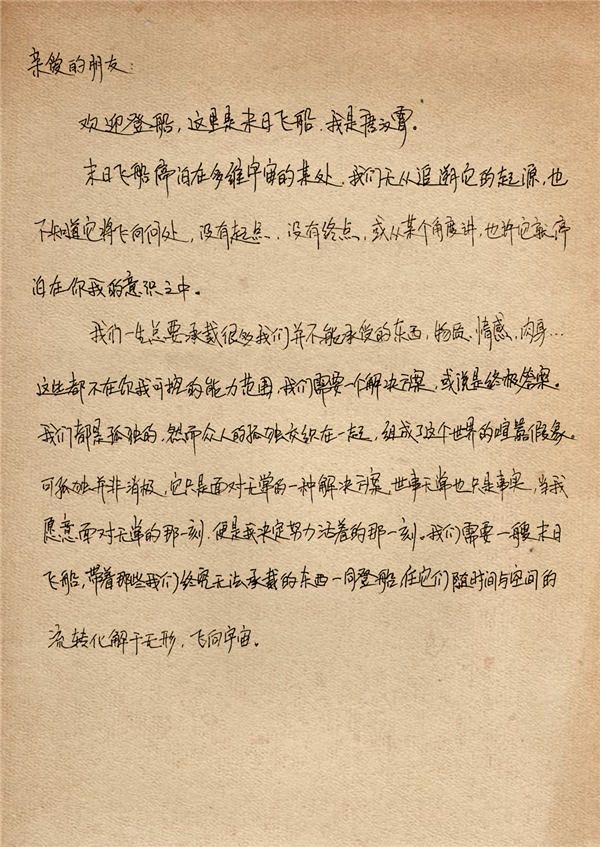 亲爱的朋友：
欢迎登船，这里是末日飞船.我是唐汉霄。
末日飞船停泊在多维宇宙的某处.我们无从追溯它的起源，也
不知道它将飞向何处，没有起点、没有终点，或从某个角度讲，也许它就停
泊在你我的意识之中。
我们一生总要承载很多我们并不能承受的东西，物质、情感、肉身…
这些都不在你我可控的能力范围，我们需要一个解决方案，或说是终极答案。
我们都是孤独的，然而众人的孤独交织在一起，组成了这个世界的喧嚣假象。
可孤独并非消极，它只是面对无常的一种解决方案，世事无常也只是事实，当我
愿意面对无常的那一刻.便是我决定努力活着的那一刻。我们需要一艘末日
飞船，带着那些我们终究无法承载的东西一同登船.任它们随时间与空间的
流转化解于无形，飞向宇宙。